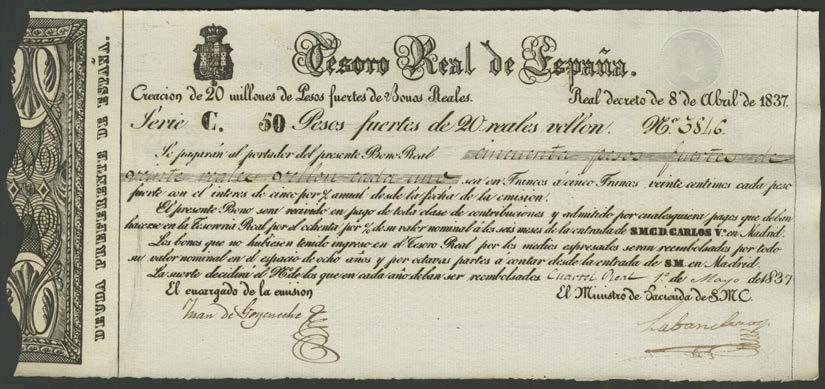 DEUDA PREFERENTE DE ESPAÑA.
Tesoro Real de España.
Creacion de 20 millones de Pesos fuertes de Bonos Reales. Real decreto de 8 de Abril de 1837.
Série C. 50 Pesos fuertes de 20 reales vellon. Nº 3846.
Se pagarán al portador del presente Bono Real cincuenta pesos fuertes de
veinte reales vellon cada uno, sea en Francos á cinco Francos veinte centimos cada peso
fuerte con el interes de cinco por % anual desde la fecha de la emision.
El presente Bono será recivido en pago de toda clase de contribuciones y admitido por cualesquiera pagos que deban
hacerse en la Tesoreria Real por el ochenta por % de su valor nominal á los seis meses de la entrada de S.M.C.D. CARLOS Vº. en Madrid.
Los bonos que no hubiesen tenido ingreso en el Tesoro Real por los medios espresados serán reembolsados por todo
su valor nominal en el espacio de ocho años y por octavas partes á contar desde la entrada de S.M. en Madrid.
La suerte decidirá el Nº de los que en cada año deban ser reembolsados. Cuartel Real 1º de Mayo de 1837
El encargado de la emision El Ministro de Hacienda de S.M.C.
Juan de Goyeneche
Labandero